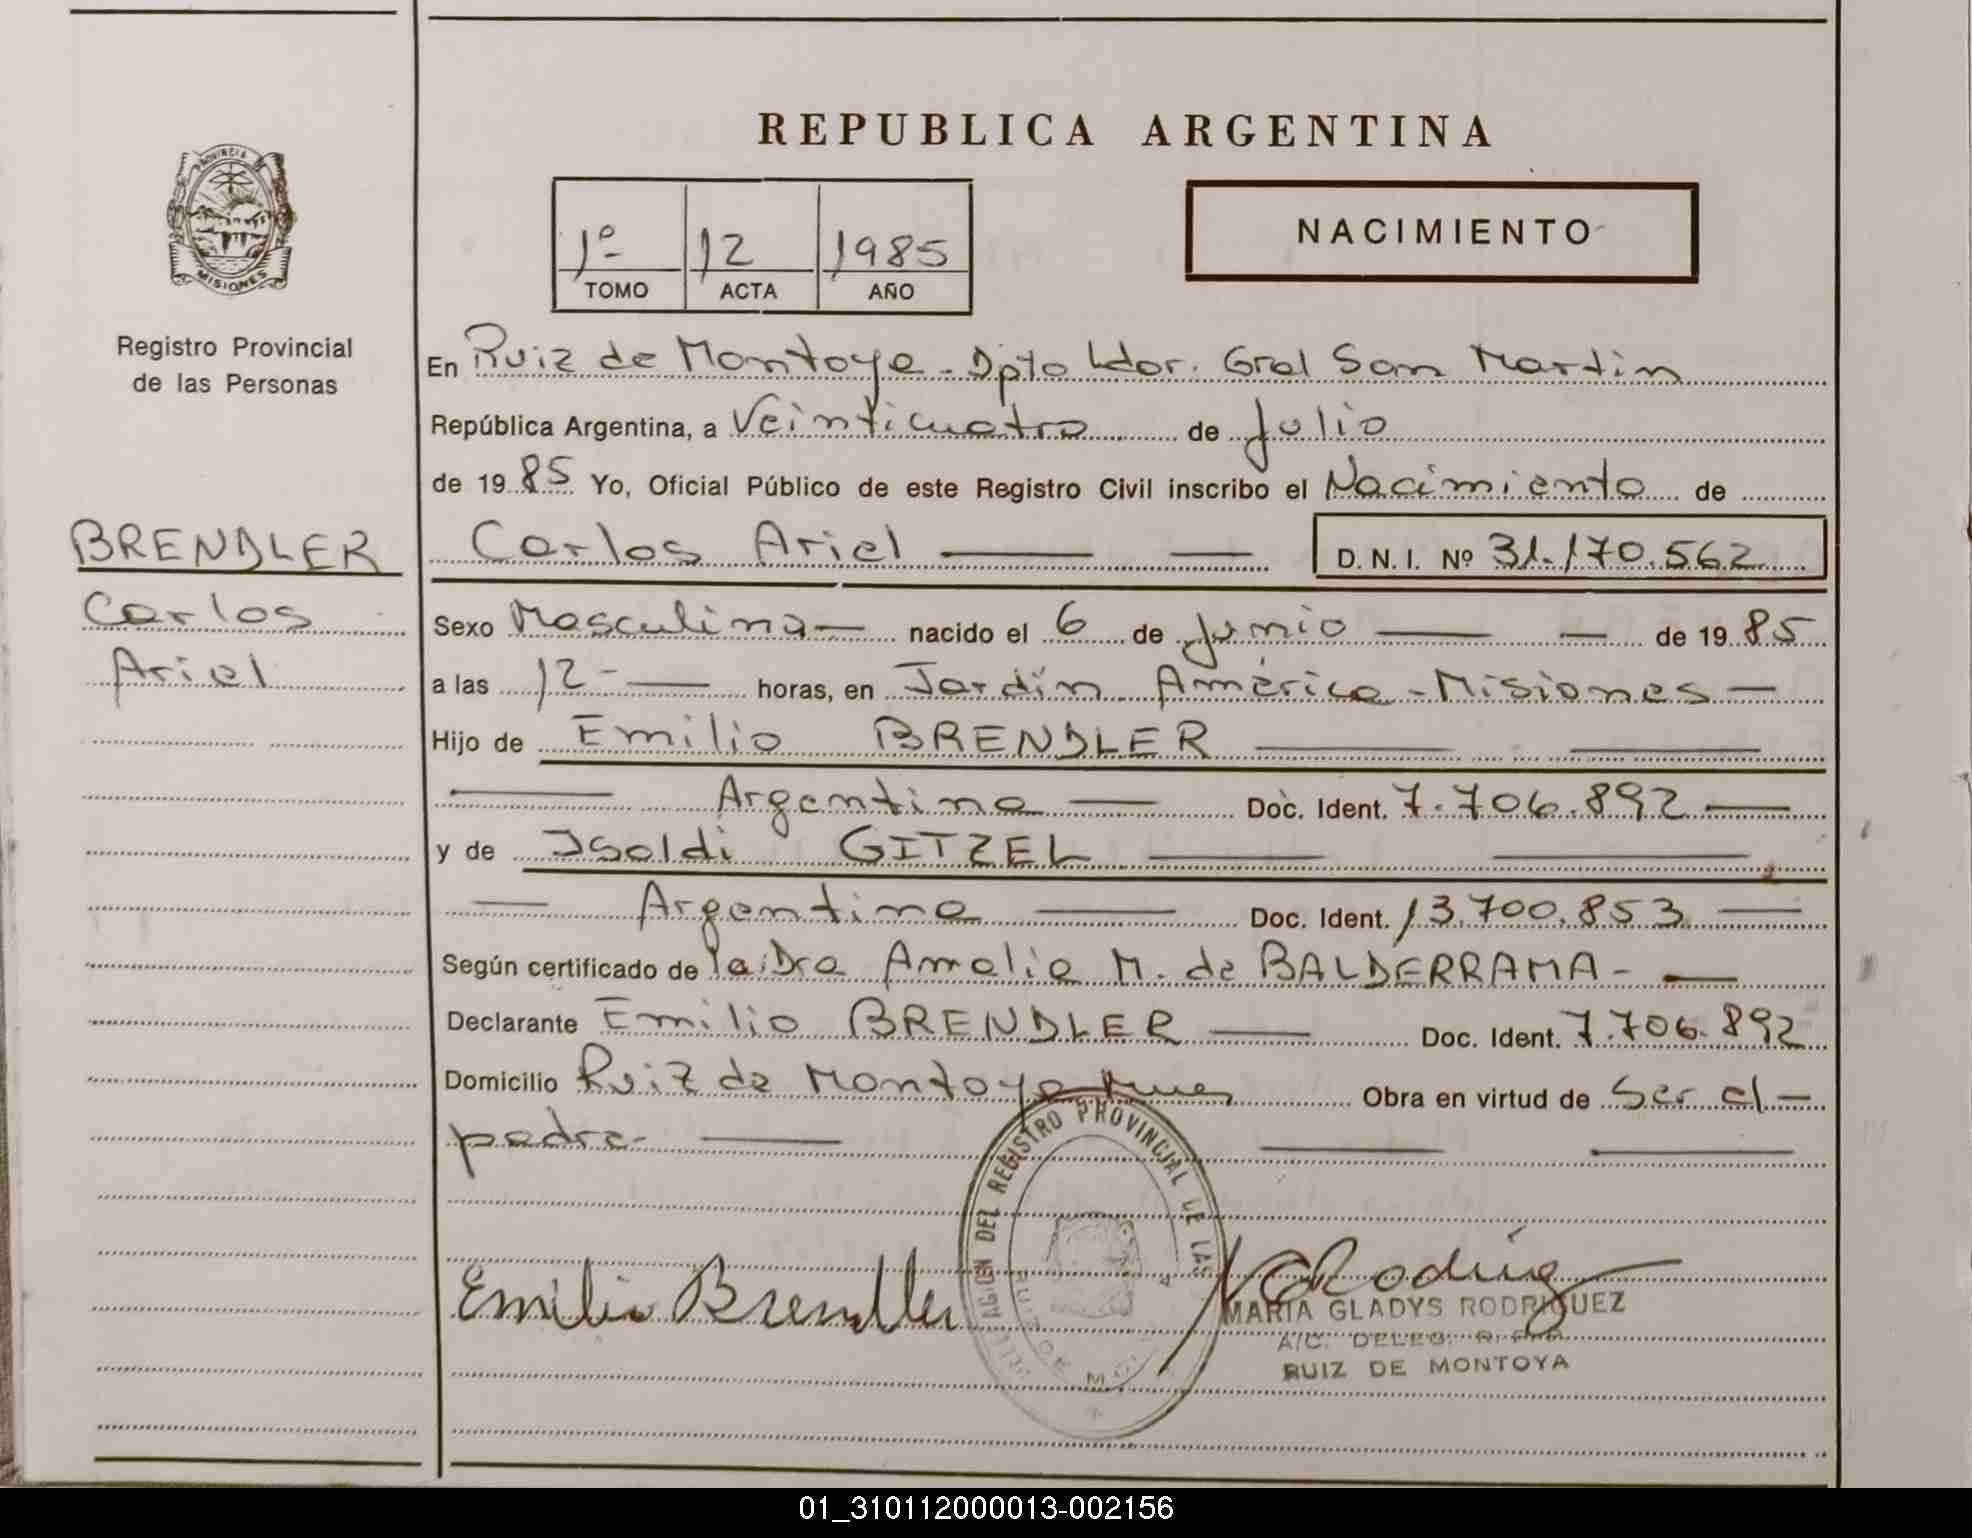 REPUBLICA ARGENTINA
PROVINCIA DE
MISIONES
Registro Provincial
de las Personas
1º 12 1985
TOMO ACTA AÑO
NACIMIENTO
En Ruiz de Montoya - Dpto Ldor. Gral San Martin
República Argentina, a Veinticuatro de Julio
de 1985 Yo, Oficial Público de este Registro Civil inscribo el Nacimiento de
BRENDLER
Carlos
Ariel
Carlos Ariel
D. N. I. Nº 31.170.562
Sexo Masculino nacido el 6 de Junio de 1985
a las 12 - horas, en Jardín América - Misiones
Hijo de Emilio BRENDLER
Argentina Doc. Ident. 7.706.892
y de Isoldi GITZEL
Argentina Doc. Ident. 13.700.853
Según certificado de la Dra Amalia M. de BALDERRAMA -
Declarante Emilio BRENDLER Doc. Ident. 7.706.892
Domicilio Ruiz de Montoya Mnes Obra en virtud de Ser el
padre
DELEGACION DEL REGISTRO PROVINCIAL DE LAS
RUIZ DE
Emilio Brendler
MARIA GLADYS RODRIGUEZ
A/C. DELEG. R. P. P.
RUIZ DE MONTOYA
01_310112000013-002156